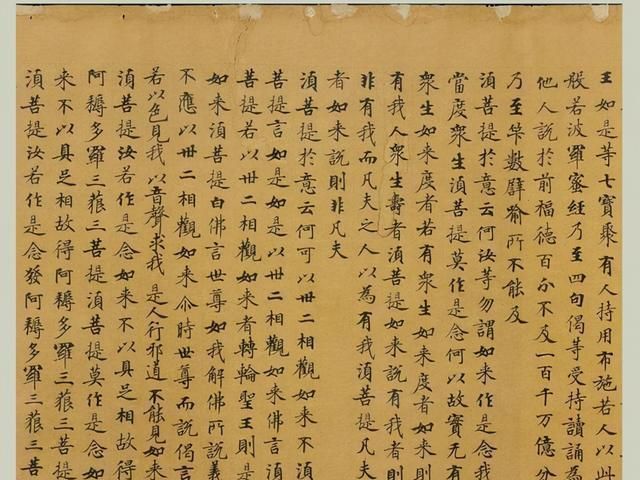 王如是等七寶聚有人持用布施若人以此
般若波羅蜜經乃至四句偈等受持讀誦為
他人說於前福德百分不及一百千万億分
乃至筭數譬喻所不能及
湏菩提於意云何汝等勿謂如来作是念我
當度衆生湏菩提莫作是念何以故實无有
衆生如来度者若有衆生如来度者如来
有我人衆生壽者湏菩提如来說有我者
非有我而凡夫之人以為有我湏菩提凡夫
者如来說則非凡夫
湏菩提於意云何可以卅二相觀如来不湏
菩提言如是如是以卅二相觀如来佛言湏
菩提若以卅二相觀如来者轉輪聖王則是
如来湏菩提白佛言世尊如我解佛所說義
不應以卅二相觀如来尒時世尊而說偈言
若以色見我 以音聲求我 是人行邪道 不能見如来
湏菩提汝若作是念如来不以具足相故得
阿耨多羅三藐三菩提湏菩提莫作是念如
来不以具足相故得阿耨多羅三藐三菩提
湏菩提汝若作是念發阿耨多羅三藐三菩